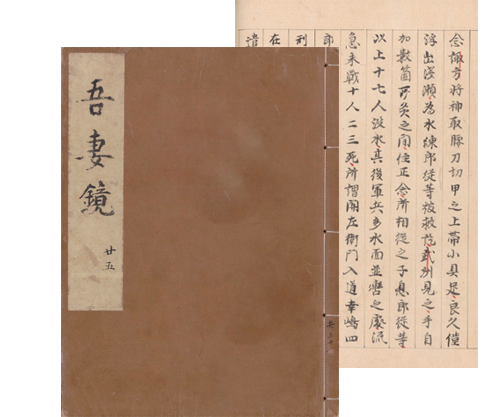 念諏方将神取腰刀切甲之上帯小具足良久僅
浮出浅瀬為水練郎従等被救訖武州見之手自
加数箇所灸之間住正念所相従之子息郎従等
以上十七人没水其後軍兵多水面並轡之處流
急未戦十人二三死所謂関左衛門入道幸嶋四
郎
利
在
遣
吾妻鏡
廿五